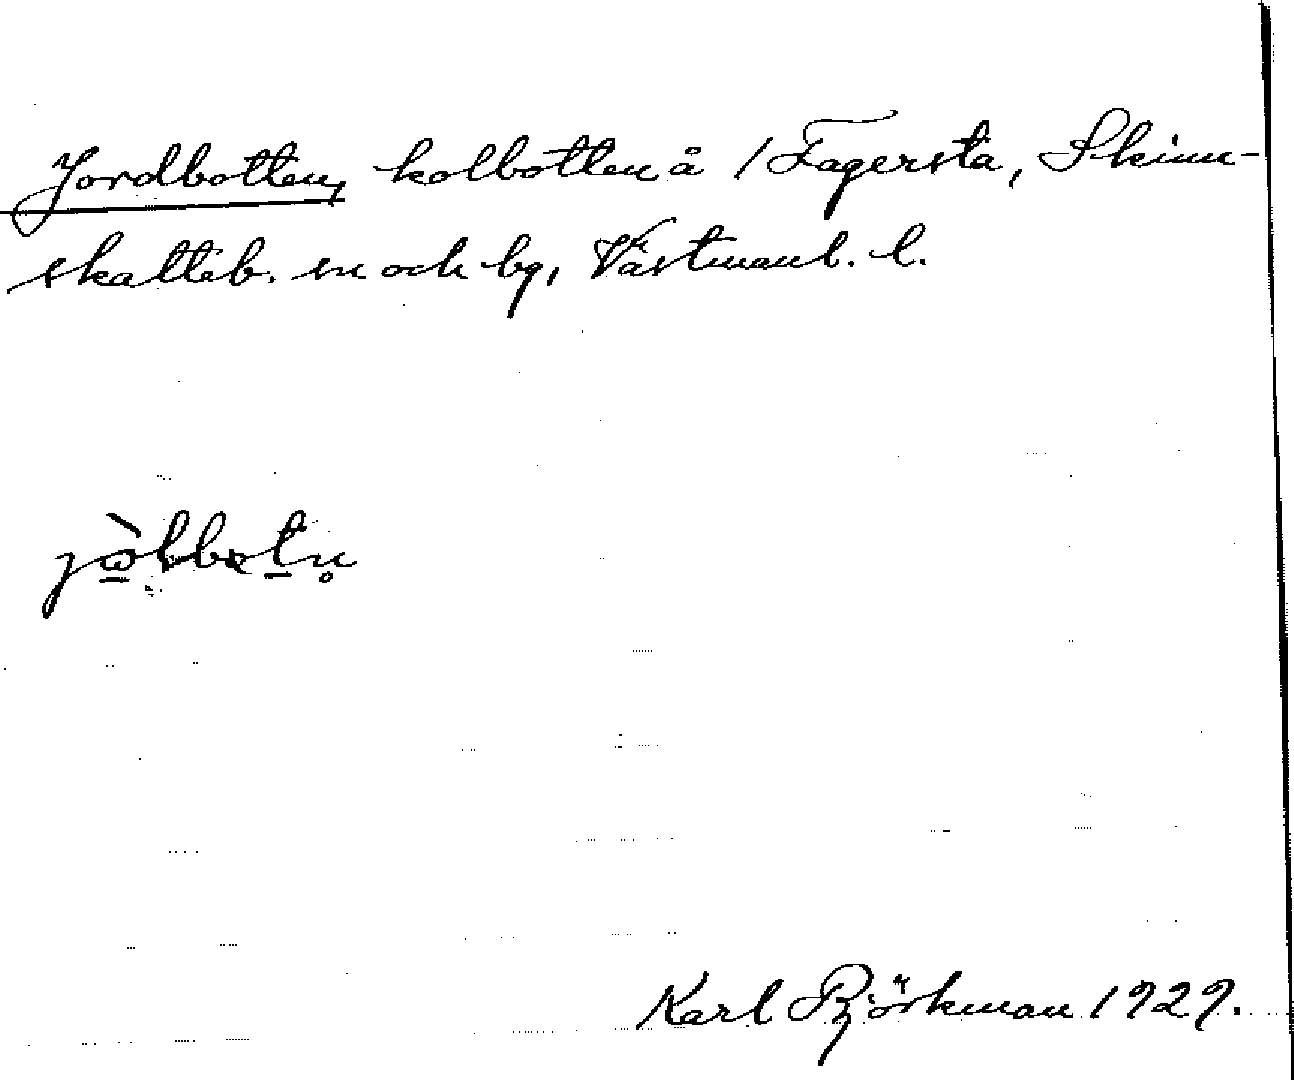 Jordbotten, kolbotten å 1 Fagersta, Skinn-
skatteb. sn och bg, Västmanl. l.
Karl Björkman 1929.